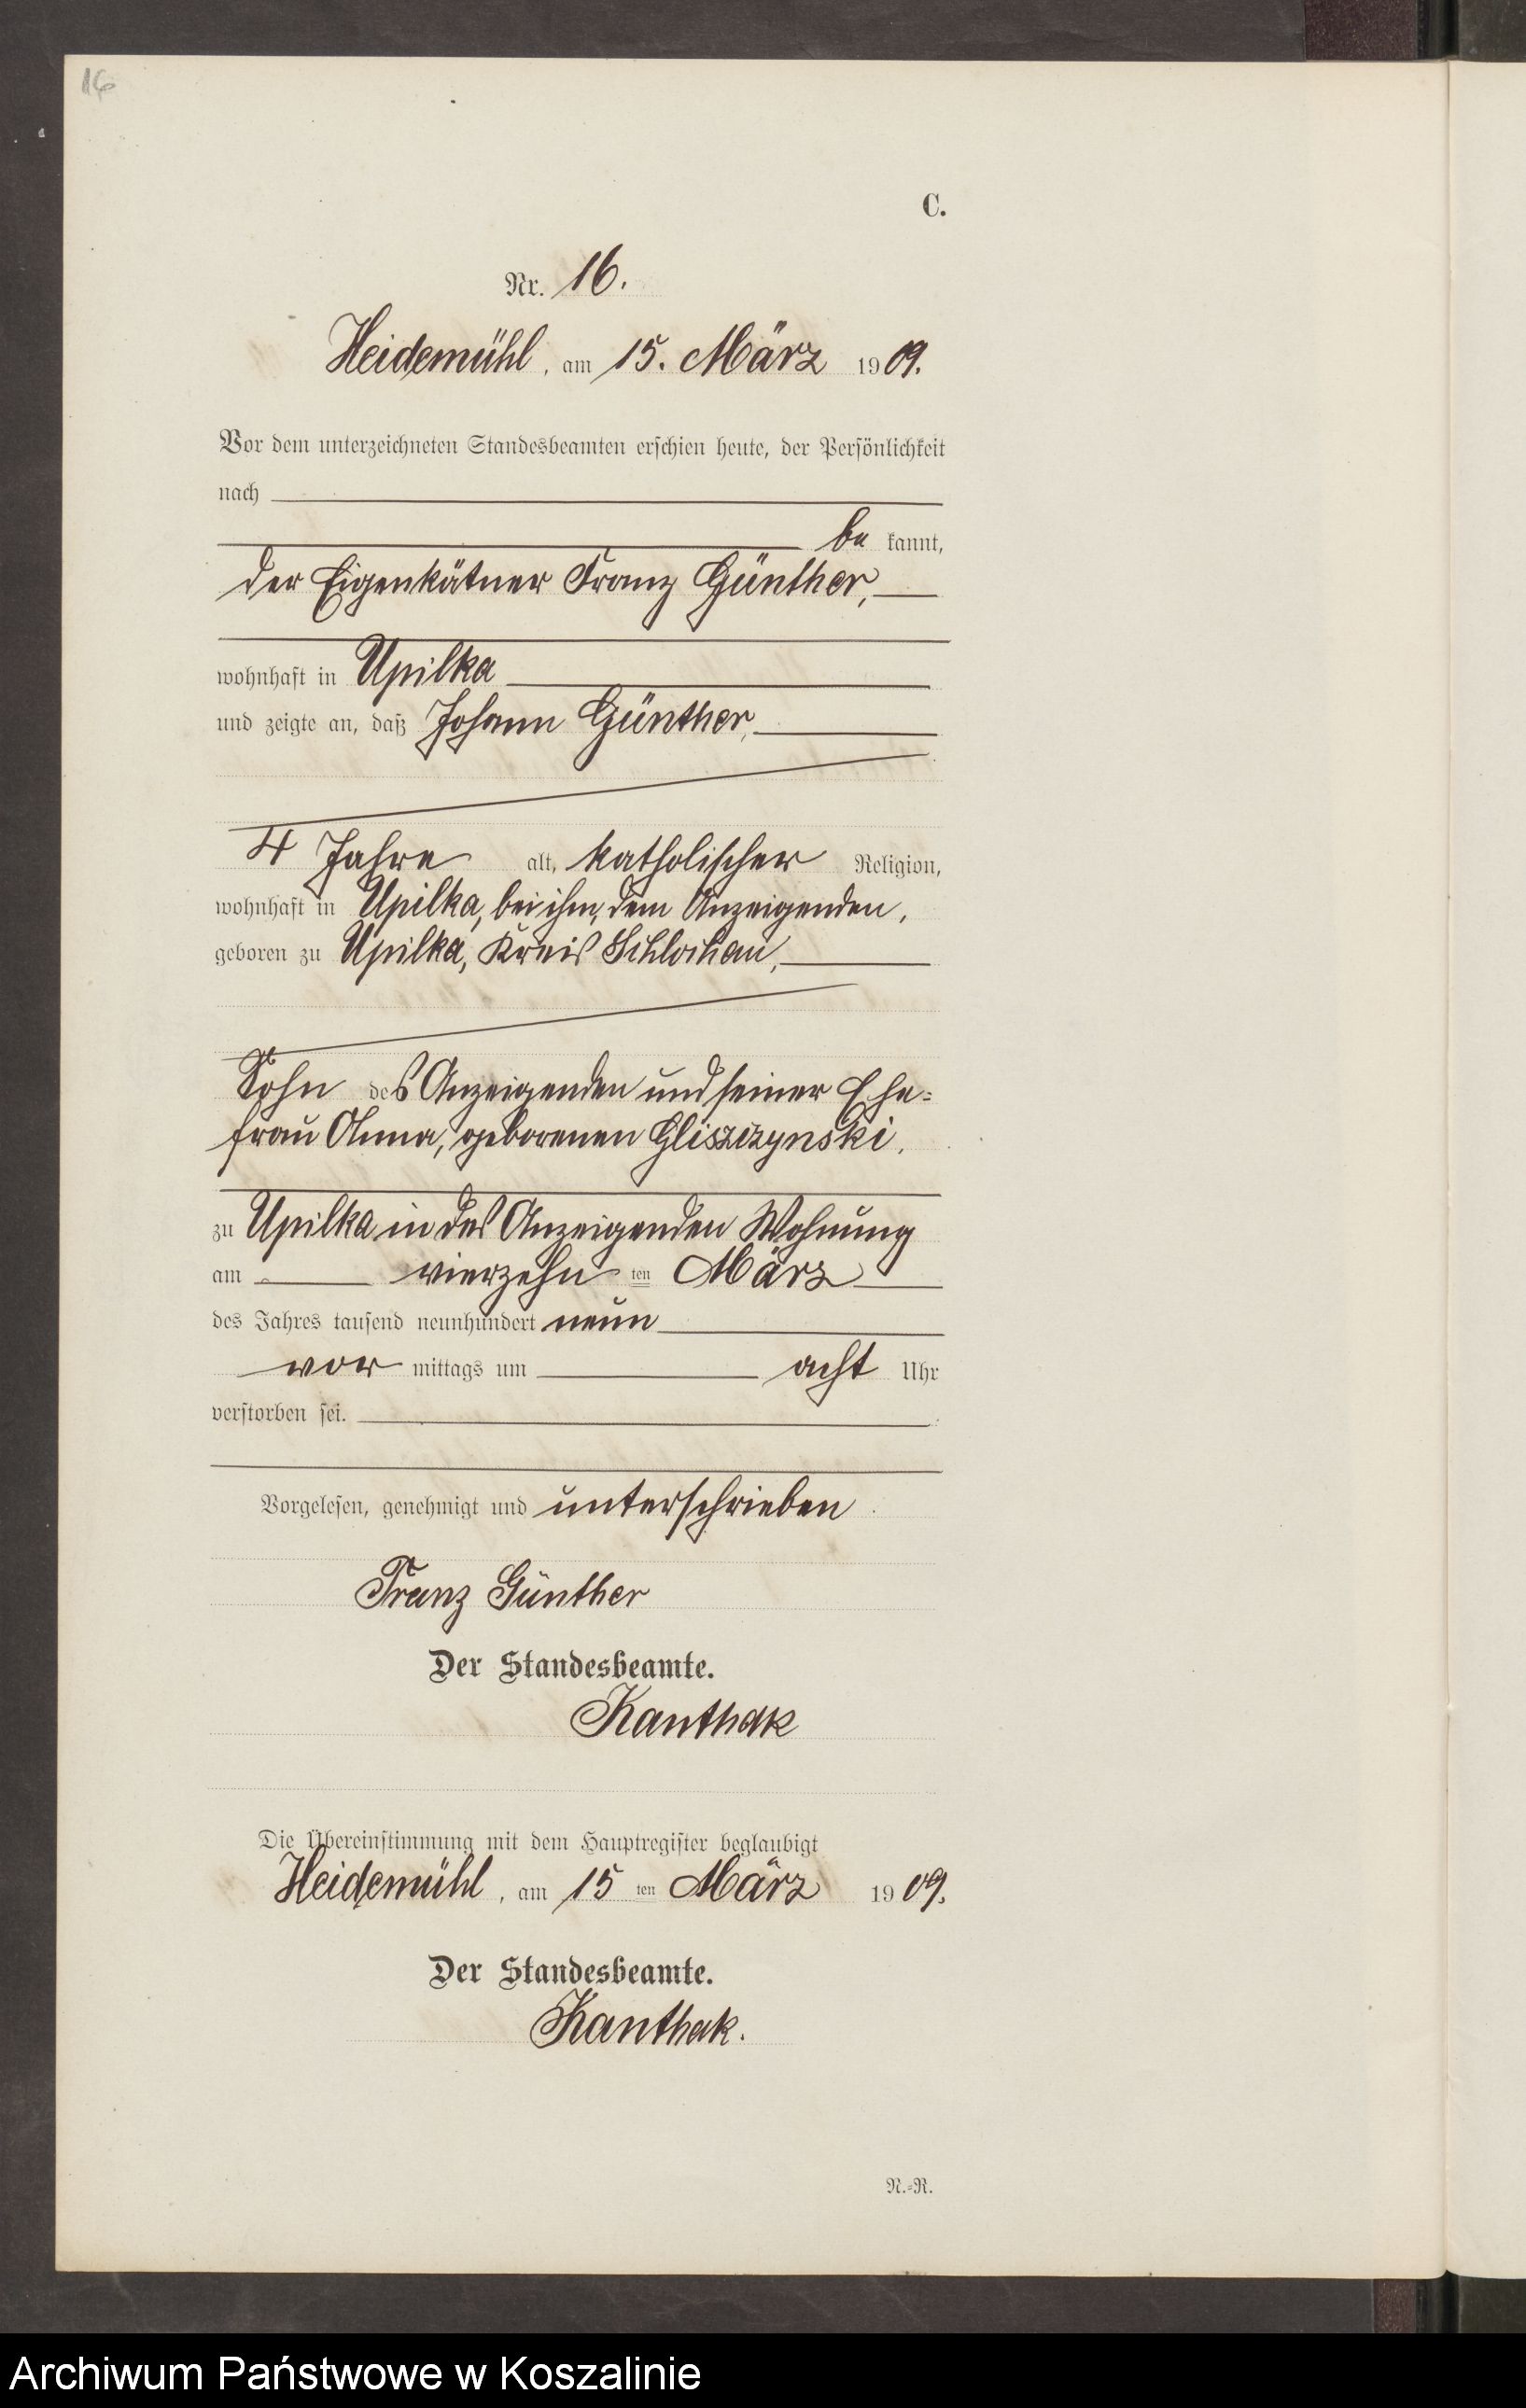 16
C.
Nr. 16.
Heidemühl, am 15. März 1909.
Vor dem unterzeichneten Standesbeamten erschien heute, der Persönlichkeit
nach
bekannt,
der Eigenkätner Franz Günther,
wohnhaft in Upilka
und zeigte an, daß Johann Günther,
4 Jahre alt, katholischer Religion,
wohnhaft in Upilka, bei ihm, dem Anzeigenden,
geboren zu Upilka, Kreis Schlochau,
Sohn des Anzeigenden und seiner Ehe=
frau Anna, geborenen Gliszczynski,
zu Upilka in des Anzeigenden Wohnung
am vierzehnten März
des Jahres tausend neunhundert neun
vormittags um acht Uhr
verstorben sei.
Vorgelesen, genehmigt und unterschrieben.
Franz Günther
Der Standesbeamte.
Kanthak
Die Übereinstimmung mit dem Hauptregister beglaubigt
Heidemühl, am 15ten März 1909.
Der Standesbeamte.
Kanthak.
N.=R.
Archiwum Państwowe w Koszalinie